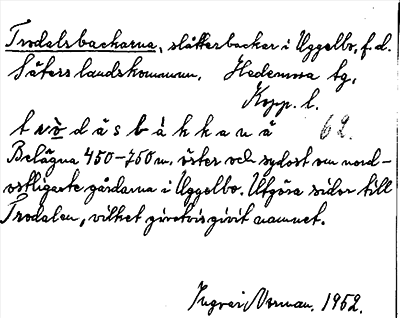 Trodalsbackarna, slåtterbackar i Uggelbo, f.d.
Säters landskommun. Hedemora tg,
Kopp. l.
t r ò d à s b à k k a n à 62.
Belägna 450–750 m. öster och sydost om nord-
ostligaste gårdarna i Uggelbo. Utgöra sidor till
Trodalen, vilket givetvis givit namnet.
Ingvar Norman. 1952.